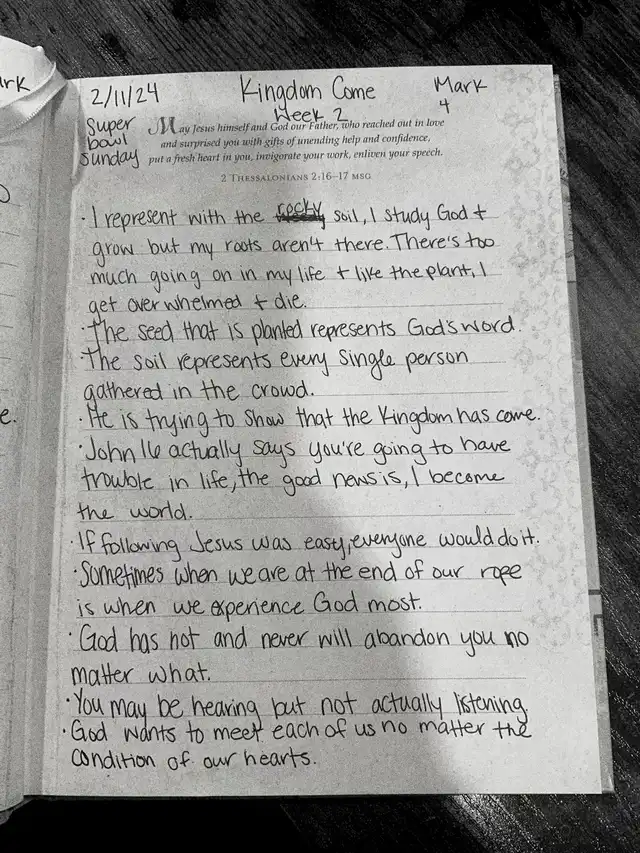 ark
2/11/24
Kingdom Come
Week 2
Mark
4
Super
bowl
Sunday
May Jesus himself and God our Father, who reached out in love
and surprised you with gifts of unending help and confidence,
put a fresh heart in you, invigorate your work, enliven your speech.
2 THESSALONIANS 2:16–17 MSG
· I represent with the rocky soil, I study God +
grow but my roots aren't there. There's too
much going on in my life + like the plant, I
get overwhelmed + die.
· The seed that is planted represents God's word.
The soil represents every single person
gathered in the crowd.
· He is trying to show that the Kingdom has come.
e.
· John 16 actually says you're going to have
trouble in life, the good news is, I become
the world.
· If following Jesus was easy, everyone would do it.
· Sometimes when we are at the end of our rope
is when we experience God most.
· God has not and never will abandon you no
matter what.
· You may be hearing but not actually listening
· God wants to meet each of us no matter the
condition of our hearts.